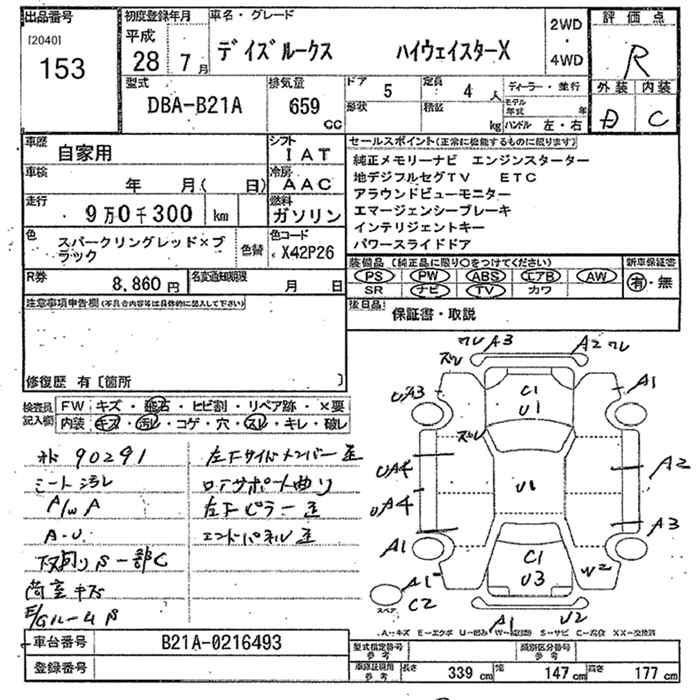 出品番号 初度登録年月 車名・グレード 評価点
[2040] 153
平成 28 7月
デイズルークス ハイウェイスターX
2WD・4WD
R
型式 DBA-B21A
排気量 659 CC
ドア 5 定員 4人
形状 積載 kg
ディーラー・並行
モデル年式 年
ハンドル 左・右
外装 内装
D C
車歴 自家用
シフト IAT
車検 年 月( 日)
冷房 AAC
走行 9万0千300 km
燃料 ガソリン
色 スパークリングレッド×ブラック
色替
色コード X42P26
R券 8,860円
名変適期限 月 日
セールスポイント(正常に機能するものに限ります)
純正メモリーナビ エンジンスターター
地デジフルセグTV ETC
アラウンドビューモニター
エマージェンシーブレーキ
インテリジェントキー
パワースライドドア
装備品(純正品に限り○をつけてください) 新車保証書
PS PW ABS エアB AW
SR ナビ TV カワ
有・無
後日品 保証書・取説
注意事項申告欄(不具合内容等は具体的に記入して下さい)
修復歴 有〔箇所 〕
検査員記入欄
FW キズ・飛石・ヒビ割・リペア跡・×要
内装 キズ・汚レ・コゲ・穴・スレ・キレ・破レ
90291
シート汚レ
A/W A
A・U
下回りS一部C
荷室キズ
E/GルームS
左Fサイドメンバー歪
ロアサポート曲り
左Fピラー歪
エンドパネル歪
ワレ A3 A2 ワレ
ズレ
UA3 C1 U1 A1
ズレ
UA4 A2
U1
UA4 A3
A1 C1 U3 W2
スペア A1 C2
A1 U2
A-キズ E-エクボ U-凹み W-波(凹) S-サビ C-腐食 XX-交換済
車台番号 B21A-0216493
登録番号
型式指定番号 参考 類別区分番号 参考
車庫証明用 参考 長さ 339cm 幅 147cm 高さ 177cm